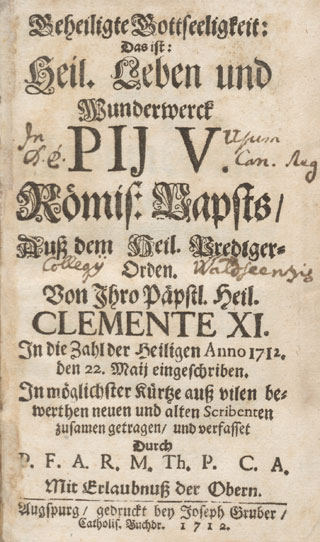 Geheiligte Gottseeligkeit:
Das ist:
Heil. Leben und
Wunderwerck
PIJ V.
In Usum
Can. Aug
Römis. Papsts/
Auß dem Heil. Prediger-
Collegij Orden. Waldseensis
Von Ihro Päpstl. Heil.
CLEMENTE XI.
In die Zahl der Heiligen Anno 1712.
den 22. Maij eingeschriben.
In möglichster Kürtze auß vilen be-
werthen neuen und alten Scribenten
zusamen getragen/ und verfasset
Durch
P. F. A. R. M. Th. P. C. A.
Mit Erlaubnuß der Obern.
Augspurg/ gedruckt bey Joseph Gruber/
Catholis. Buchdr. 1712.